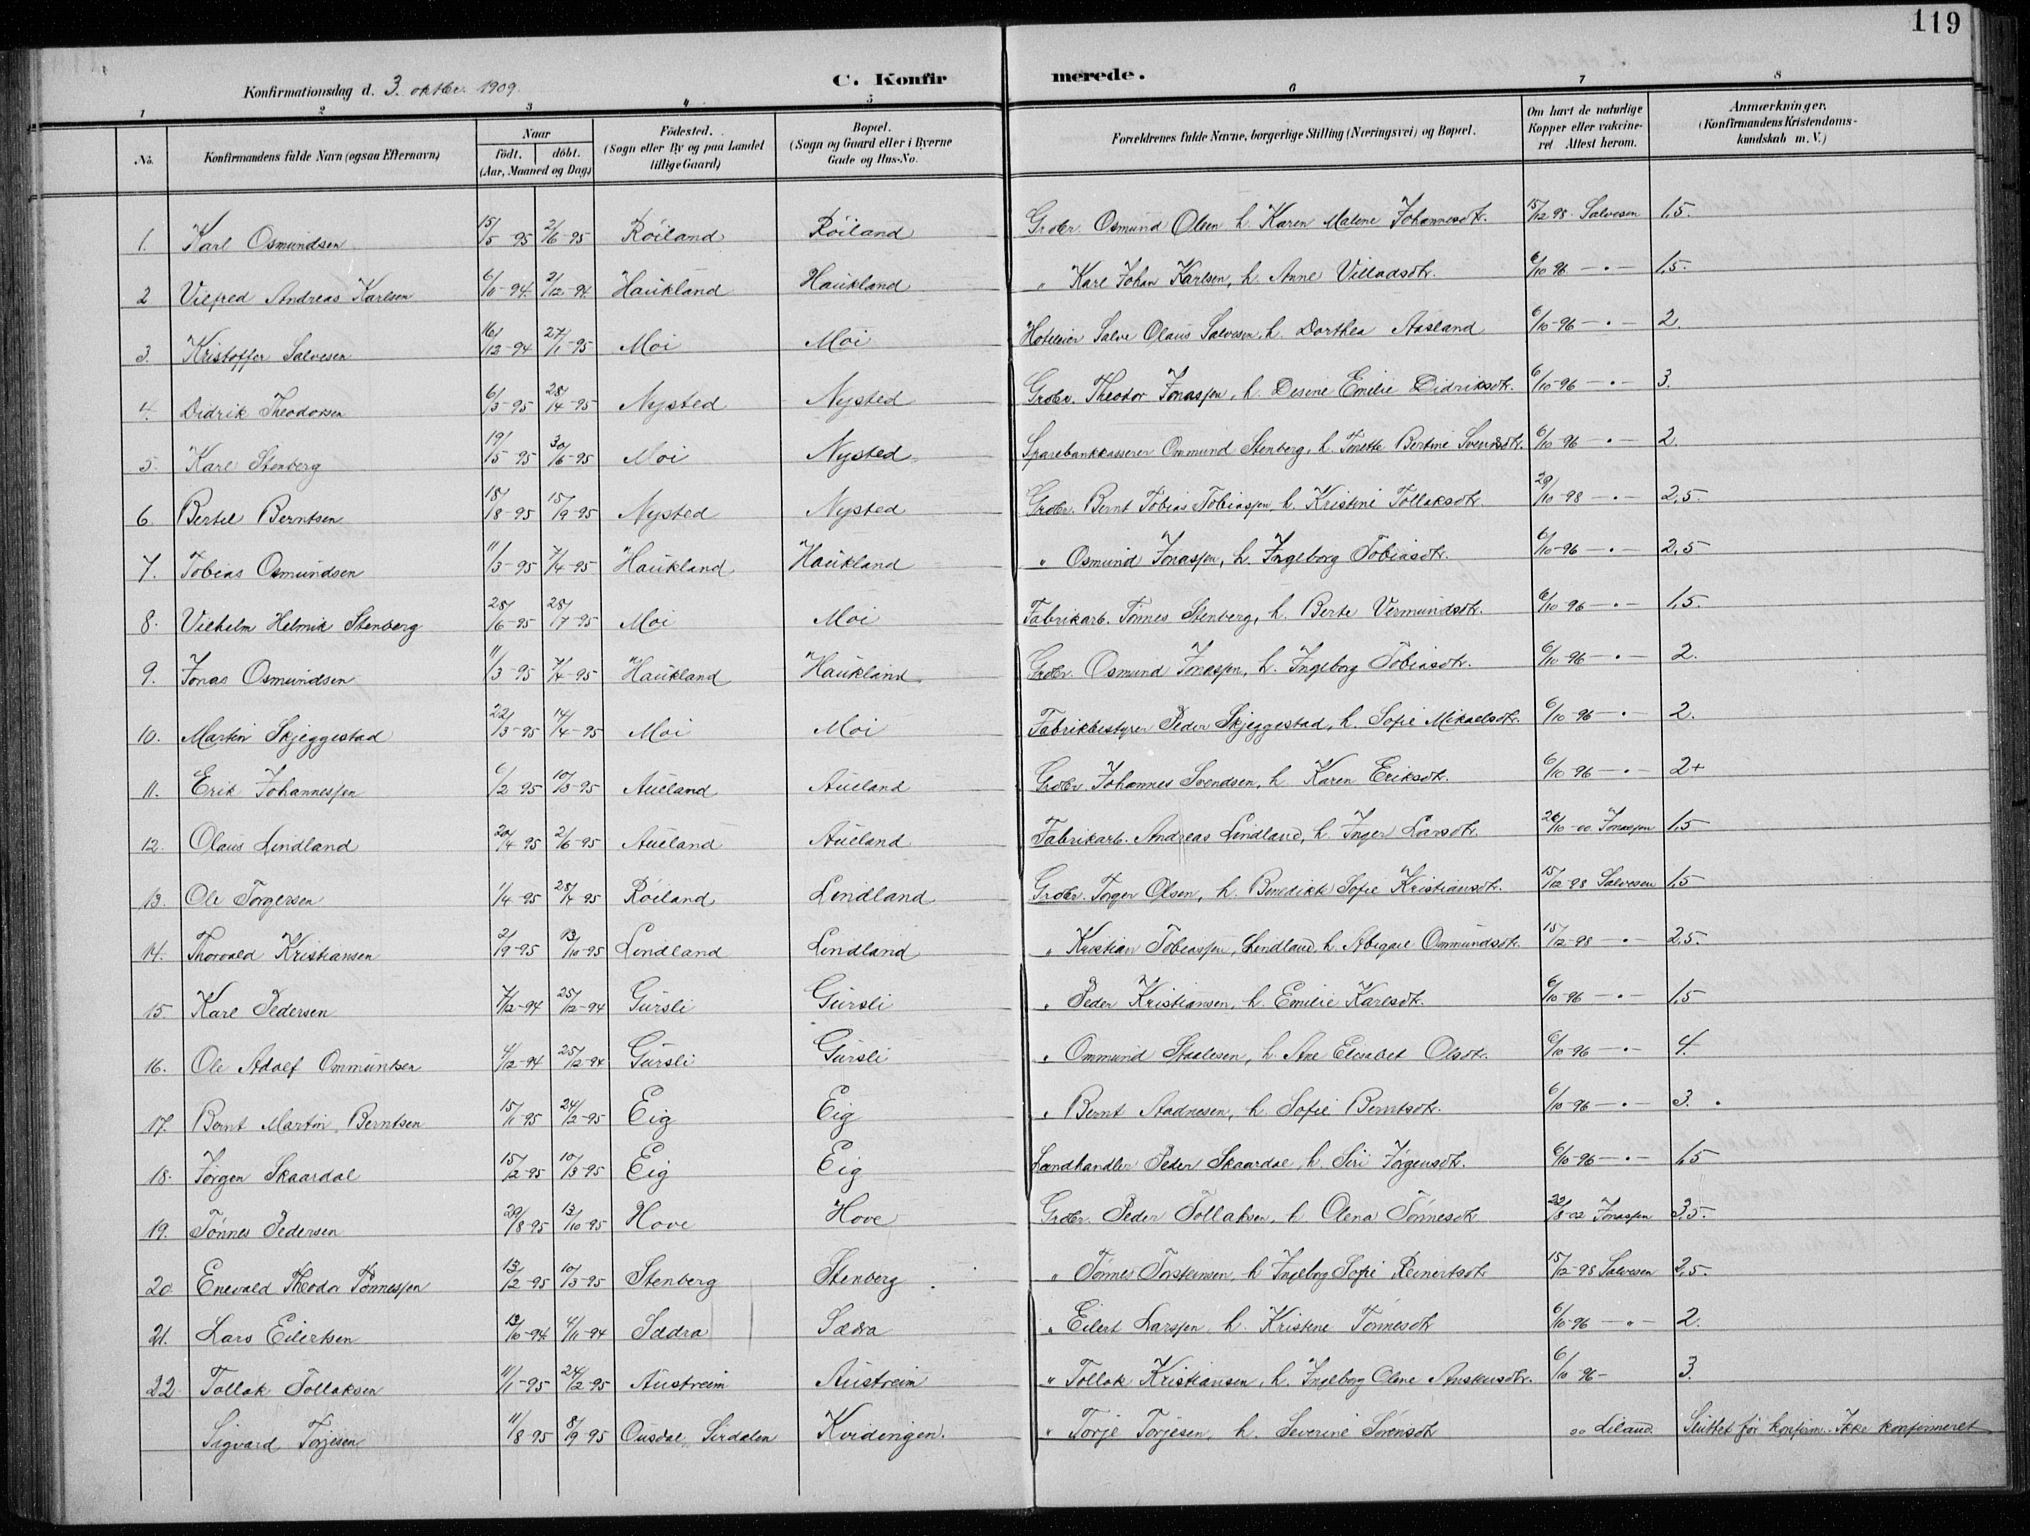 119
Konfirmationsdag d. 3. oktbr. 1909.
C. Konfirmerede.
1 2 3 4 5 6 7 8
No. Konfirmandens fulde Navn (ogsaa Efternavn) Naar født. døbt. (Aar, Maaned og Dag) Fødested. (Sogn eller By og paa Landet tillige Gaard) Bopæl. (Sogn og Gaard eller i Byerne Gade og Hus-No. Forældrenes fulde Navne, borgerlige Stilling (Næringsvei) og Bopæl. Om havt de naturlige Kopper eller vakcineret Attest herom. Anmærkninger. (Konfirmandens Kristendomskundskab m. V.)
1. Karl Osmundsen 15/5-95 2/6-95 Röiland Röiland Grdbr. Osmund Olsen h. Karen Malene Johannesdtr. 15/12 98 Salvesen 1,5.
2 Vilfred Andreas Karlsen 6/10-94 2/12-94 Haukland Haukland " Karl Johan Karlsen, h. Anne Villadsdtr. 6/10 96 -"- 1,5.
3. Kristoffer Salvesen 16/12-94 27/1-95 Moi Moi Hoteleier Salve Olaus Salvesen, h. Dorthea Aasland 6/10-96 -"- 2
4. Didrik Theodorsen 6/3-95 28/4-95 Nysted Nysted Grdbr. Theodor Jonassen, h. Desine Emilie Didriksdtr. 6/10-96 -"- 3.
5. Karl Stenberg 19/5-95 30/6-95 Moi Nysted Sparebankkasserer Ommund Stenberg, h. Tonette Bertine Svendsdtr. 6/10-96 -"- 2
6. Bertel Berntsen 18/8-95 15/9-95 Nysted Nysted Grdbr. Bernt Tobias Tobiassen, h. Kristine Tollaksdtr. 29/10-98 -"- 2,5.
7. Tobias Osmundsen 11/3-95 7/4-95 Haukland Haukland " Osmund Jonassen, h. Ingeborg Tobiasdtr. 6/10-96 -"- 2,5
8. Vilhelm Helmik Stenberg 28/6-95 28/7-95 Moi Moi Fabrikarb. Tönnes Stenberg, h. Berte Vermundsdtr. 6/10-96 -"- 1,5.
9. Jonas Osmundsen 11/3-95 7/4-95 Haukland Haukland Grdbr. Osmund Jonassen, h. Ingeborg Tobiasdtr. 6/10-96 -"- 2.
10. Martin Skjeggestad 22/3-95 14/4-95 Moi Moi Fabrikbestyrer Peder Skjeggestad, h. Sofie Mikaelsdtr. 6/10-96 -"- 2.
11. Erik Johannessen 6/2 95 10/3-95 Aueland Aueland Grdbr. Johannes Svendsen, h Karen Eriksdtr. 6/10-96 -"- 2+
12. Olaus Lindland 20/4 95 2/6-95 Aueland Aueland Fabrikarb. Andreas Lindland, h. Inger Larsdtr. 26/10-00. Jonassen 1,5
13. Ole Torgersen 1/4-95 28/4-95 Röiland Lindland Grdbr. Torger Olsen, h. Benedikte Sofie Kristiansdtr. 15/12-98 Salvesen 1,5
14. Thorvald Kristiansen 2/9-95 13/10-95 Lindland Lindland " Kristian Tobiassen, Lindland, h. Abigael Ommundsdtr. 15/12-98 -"- 2,5.
15. Karl Pedersen 7/12-94 25/12-94 Gursli Gursli " Peder Kristiansen, h. Emilie Karlsdtr. 6/10-96 -"- 1,5
16. Ole Adolf Ommuntsen 4/12-94 25/12-94 Gursli Gursli " Ommund Staalesen, h. Ane Elisabet Olsdtr. 6/10-96 -"- 4.
17. Bernt Martin Berntsen 15/1-95 24/2-95 Eig Eig " Bernt Aadnesen, h. Sofie Berntsdtr. 6/10-96 -"- 3.
18. Jörgen Skaardal 15/2-95 10/3-95 Eig Eig Landhandler Peder Skaardal, h Siri Jörgensdtr. 6/10-96 -"- 1,5
19. Tönnes Pedersen 29/8-95 13/10-95 Hove Hove Grdbr. Peder Tollaksen, h. Olena Tönnesdtr 22/8-02 Jonassen 3,5.
20 Enevald Theodor Tönnessen 13/2-95 10/3-95 Stenberg Stenberg " Tönnes Torstensen, h Ingeborg Sofie Reinertsdtr 15/12-98 Salvesen 2,5.
21. Lars Eilertsen 13/10-94 4/11-94 Sædra Sædra " Eilert Larssen, h. Kristine Tönnesdtr 6/10-96 -"- 2.
22. Tollak Tollaksen 11/1-95 24/2-95 Austreim Austreim " Tollak Kristiansen, h. Ingeborg Olene Austensdtr. 6/10-96- 3.
Sigvard Torjesen 11/8-95 8/9-95 Ousdal, Sirdalen Kvidingen. " Torje Torjesen, h. Severine Sörensdtr 00 Liland. Sluttet för konfirm. Ikke konfirmeret